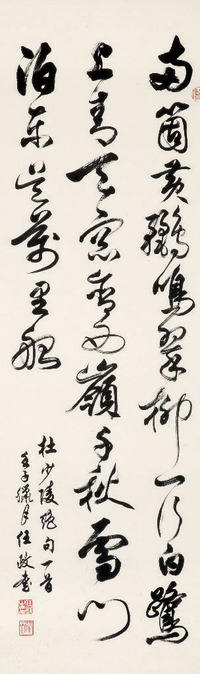 两箇黄鹂鸣翠柳一行白鹭
上青天窗含西岭千秋雪门
泊东吴万里船
杜少陵绝句一首
壬子腊月任政书